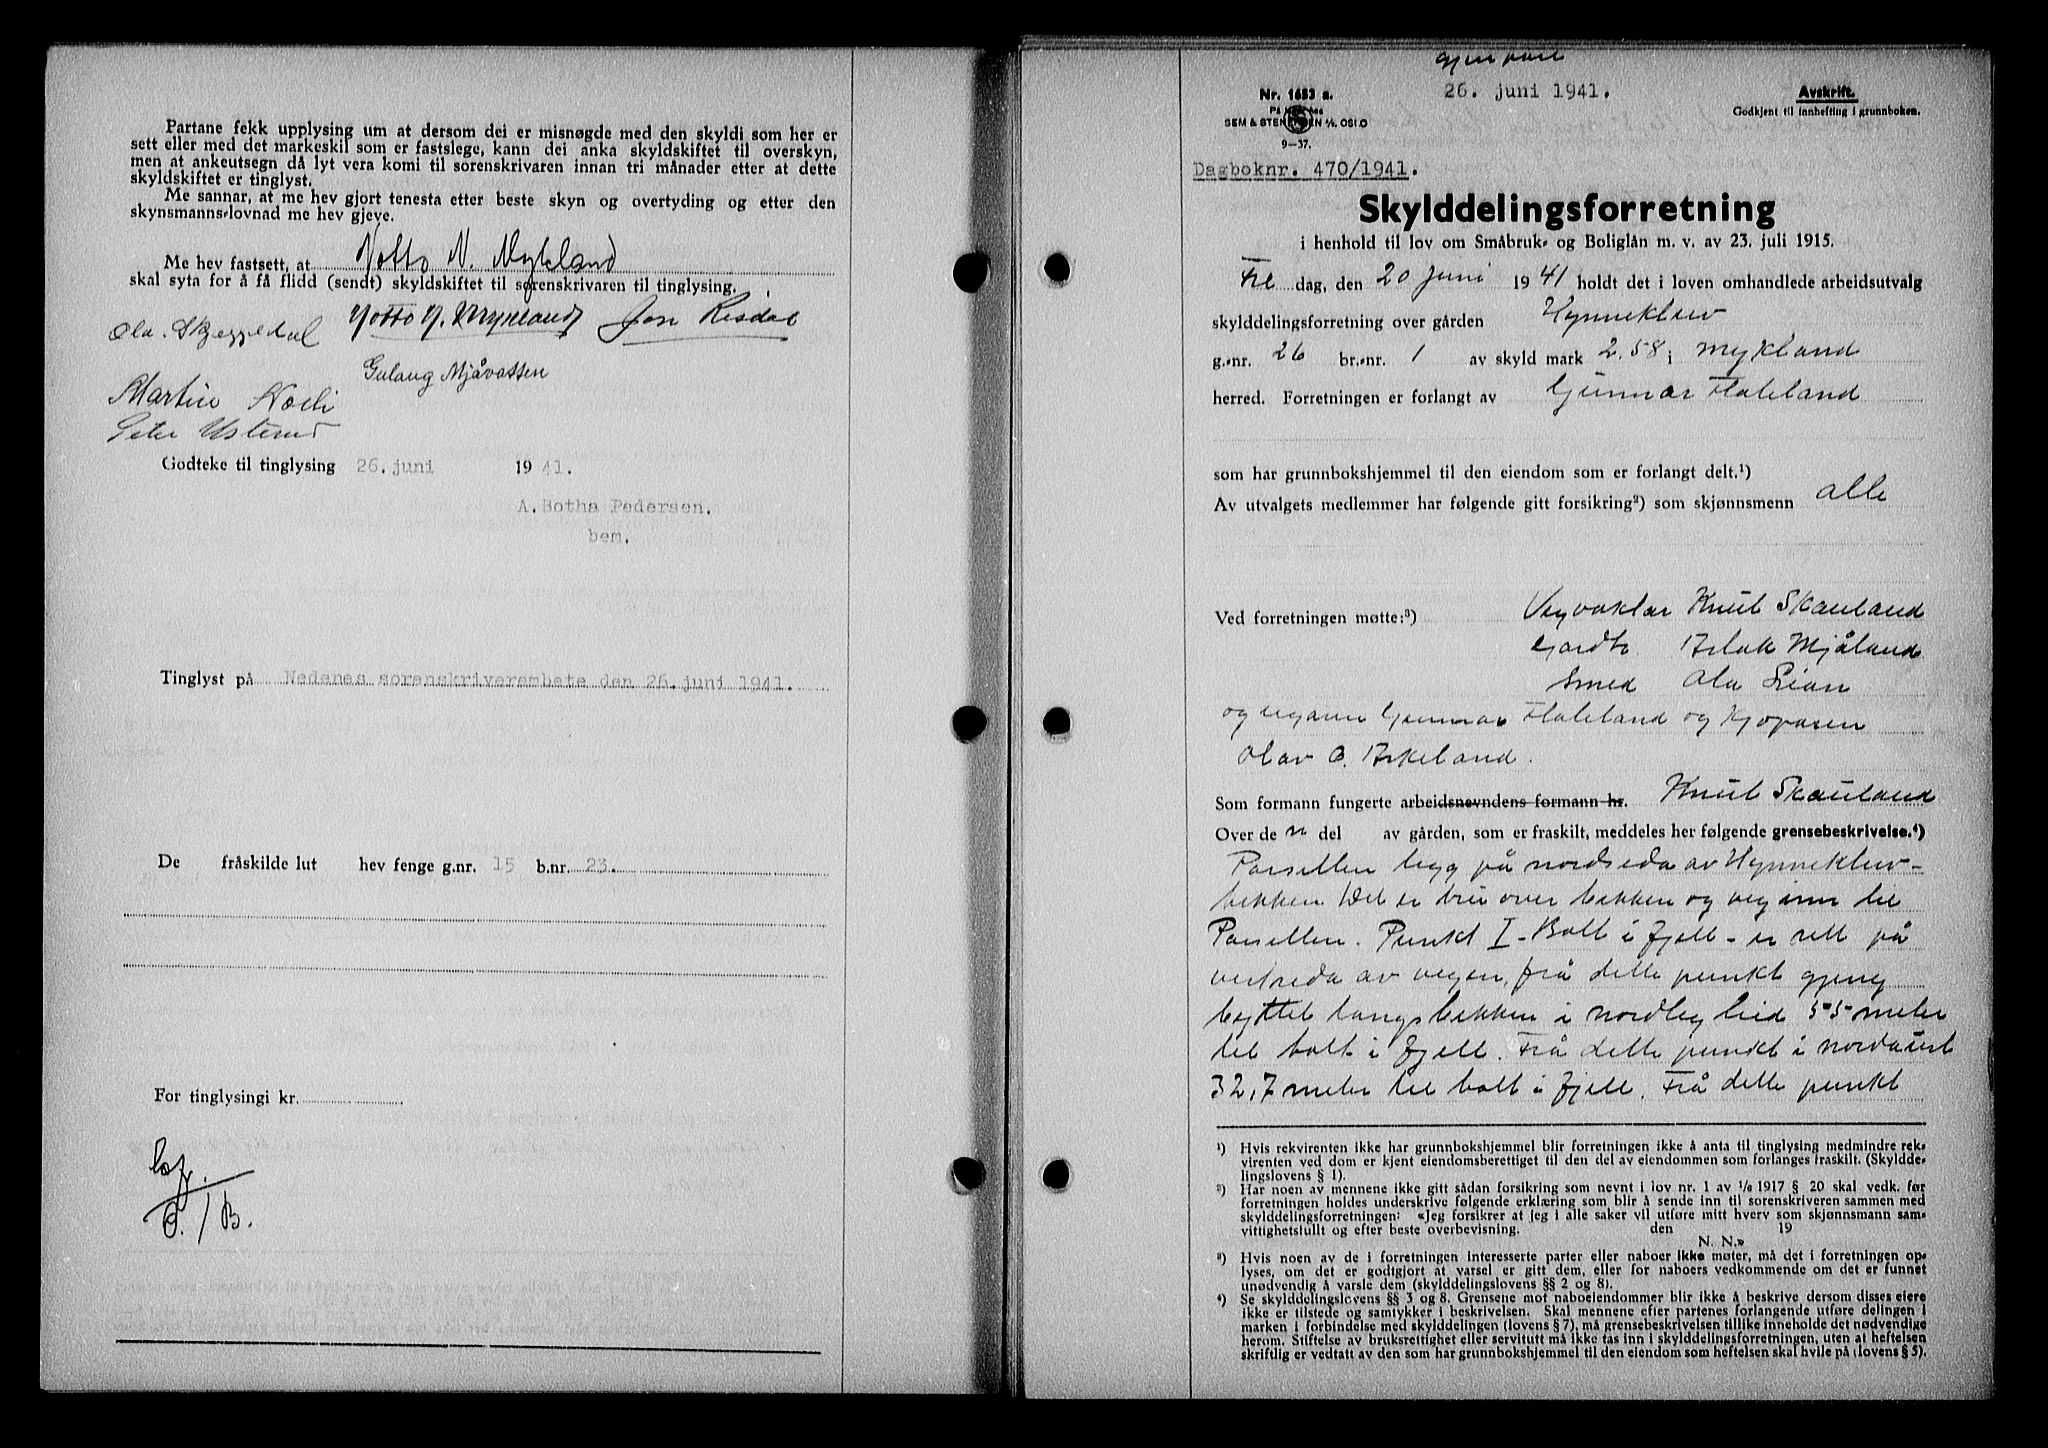 Partane fekk upplysing um at dersom dei er misnøgde med den skyldi som her er
sett eller med det markeskil som er fastslege, kann dei anka skyldskiftet til overskyn,
men at ankeutsegn då lyt vera komi til sorenskrivaren innan tri månader etter at dette
skyldskiftet er tinglyst.
Me sannar, at me hev gjort tenesta etter beste skyn og overtyding og etter den
skynsmanns-lovnad me hev gjeve.
Me hev fastsett, at Notto N. Mykland
skal syta for å få flidd (sendt) skyldskiftet til sorenskrivaren til tinglysing.
Ola. Skjeggedal Notto N. Mykland Jon Risdal
Gulaug Mjåvatten
Martin
Peter Usterud
Godteke til tinglysing 26. juni 1941.
A. Botha Pedersen.
bem.
Tinglyst på Nedenes sorenskriverembete den 26. juni 1941.
De fråskilde lut hev fenge g.nr. 15 b.nr. 23.
For tinglysingi kr.
26. juni 1941.
Nr. 1683 a.
SEM & STENERSEN A/S, OSLO
9-37.
Avskrift.
Godkjent til innhefting i grunnboken.
Dagboknr. 470/1941.
Skylddelingsforretning
i henhold til lov om Småbruk- og Boliglån m. v. av 23. juli 1915.
Fre dag, den 20 juni 1941 holdt det i loven omhandlede arbeidsutvalg
skylddelingsforretning over gården Hynneklev
g.-nr. 26 br.-nr. 1 av skyld mark 2.58 i Mykland
herred. Forretningen er forlangt av Gunnar Flateland
som har grunnbokshjemmel til den eiendom som er forlangt delt.¹)
Av utvalgets medlemmer har følgende gitt forsikring²) som skjønnsmenn alle
Ved forretningen møtte:³) Vegvaktar Knut Skauland
Gardbr Aslak Mjåland
Smed Ola Lian
og eigaren Gunnar Flateland og Kjøparen
Olav O. Askeland.
Som formann fungerte arbeidsnevndens formann hr. Knut Skauland
Over de n del av gården, som er fraskilt, meddeles her følgende grensebeskrivelse.⁴)
Parsellen ligg på nordsida av Hynneklev-
bekken. Det er bru over bekken og veg inn til
Parsellen. Punkt I - Bolt i fjell - er rett på
vestsida av vegen, frå dette punkt gjeng
byttet langs bekken i nordleg leid 55 meter
til bolt i fjell. Frå dette punkt i nordaust
32,7 meter til bolt i fjell. Frå dette punkt
¹) Hvis rekvirenten ikke har grunnbokshjemmel blir forretningen ikke å anta til tinglysing medmindre rek-
virenten ved dom er kjent eiendomsberettiget til den del av eiendommen som forlanges fraskilt. (Skyldde-
lingslovens § 1).
²) Har noen av mennene ikke gitt sådan forsikring som nevnt i lov nr. 1 av 1/6 1917 § 20 skal vedk. før
forretningen holdes underskrive følgende erklæring som blir å sende inn til sorenskriveren sammen med
skylddelingsforretningen: «Jeg forsikrer at jeg i alle saker vil utføre mitt hverv som skjønnsmann sam-
vittighetsfullt og efter beste overbevisning. den 19
N. N.»
³) Hvis noen av de i forretningen interesserte parter eller naboer ikke møter, må det i forretningen op-
lyses, om det er godtgjort at varsel er gitt dem, eller for naboers vedkommende om det er funnet
unødvendig å varsle dem (skylddelingslovens §§ 2 og 8).
⁴) Se skylddelingslovens §§ 3 og 8. Grensene mot naboeiendommer blir ikke å beskrive dersom disses eiere
ikke er tilstede og samtykker i beskrivelsen. Skal mennene efter partenes forlangende utføre delingen i
marken i forbindelse med skylddelingen (lovens § 7), må grensebeskrivelsen tillike inneholde det nødvendige
herom. Stiftelse av bruksrettighet eller servitutt må ikke tas inn i skylddelingsforretningen, uten at heftelsen
skriftlig er vedtatt av den som har grunnbokshjemmel til den eiendom som heftelsen skal hvile på (lovens § 5).